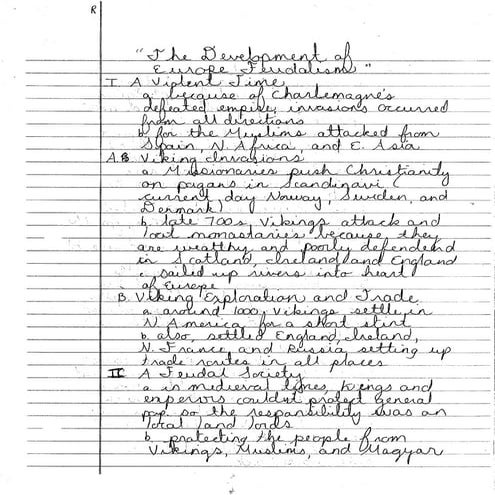 R
"The Development of
Europe Feudalism"
I. A Violent Time
a. because of Charlemagne's
defeated empire, invasions occurred
from all directions
b. for the Muslims attacked from
Spain, N. Africa, and E. Asia
A.B. Viking Invasions
a. Missionaries push Christianity
on pagans in Scandinavi
(current day Noway, Sweden, and
Denmark)
b. late 700s, Vikings attack and
loot monastaries because they
are wealthy and poorly defendend
in Scotland, Ireland and England
c. sailed up rivers into heart
of Europe
B. Viking Exploration and Trade
a. around 1000, Vikings settle in
N America for a short stint
b. also, settled England, Ireland,
N. France, and Russia, setting up
trade routes in all places
II A Feudal Society
a. in medieval times, kings and
emperors couldn't protect general
pop. so the responsibility was on
local land lords
b. protecting the people from
Vikings, Muslims, and Magyar